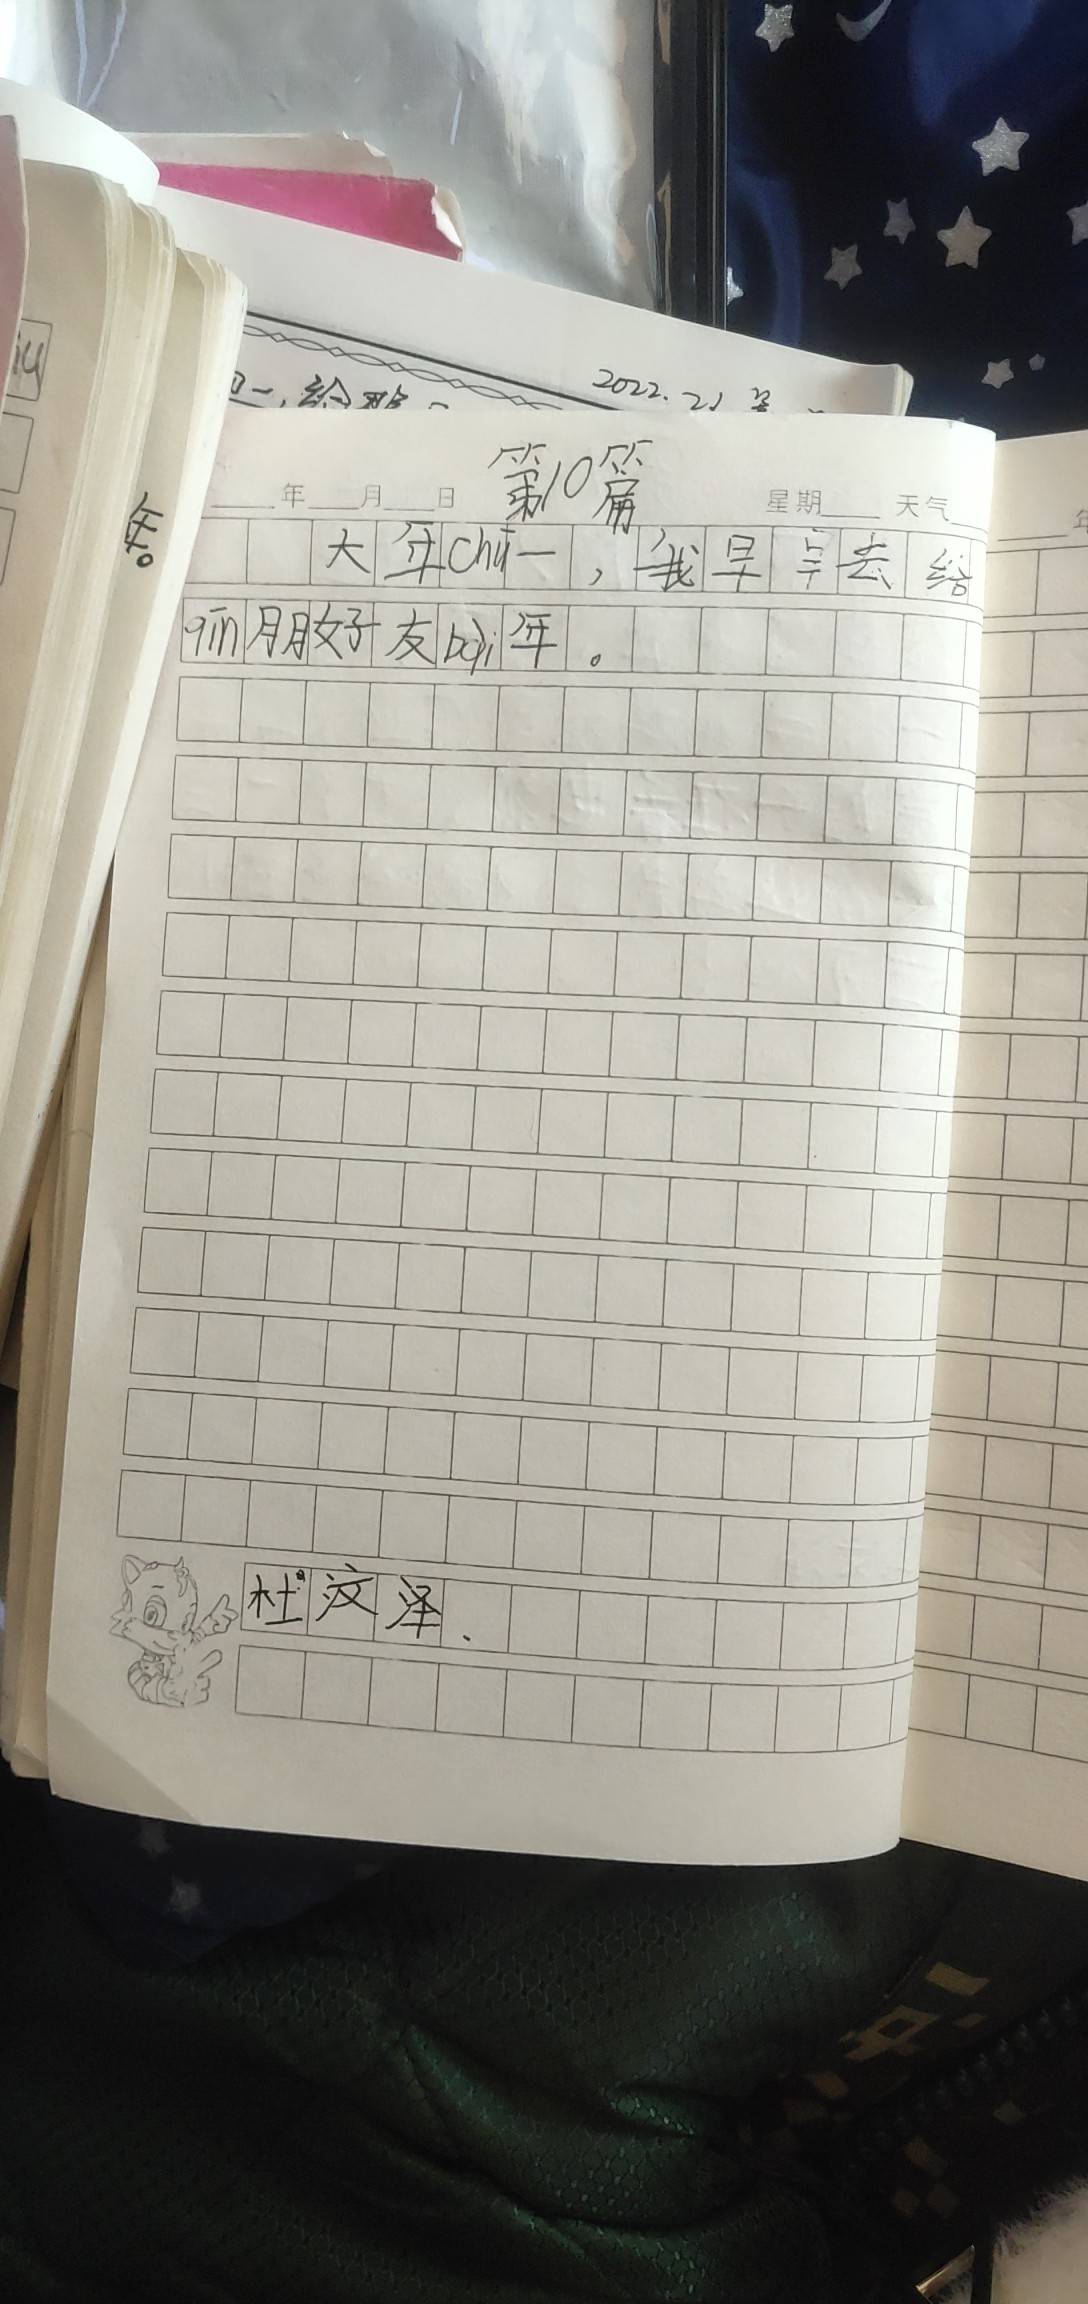 2022.21
第10篇
年 月 日 星期 天气
大年chū一，我早早去给
qīn朋好友bài年。
杜汶泽、
年。